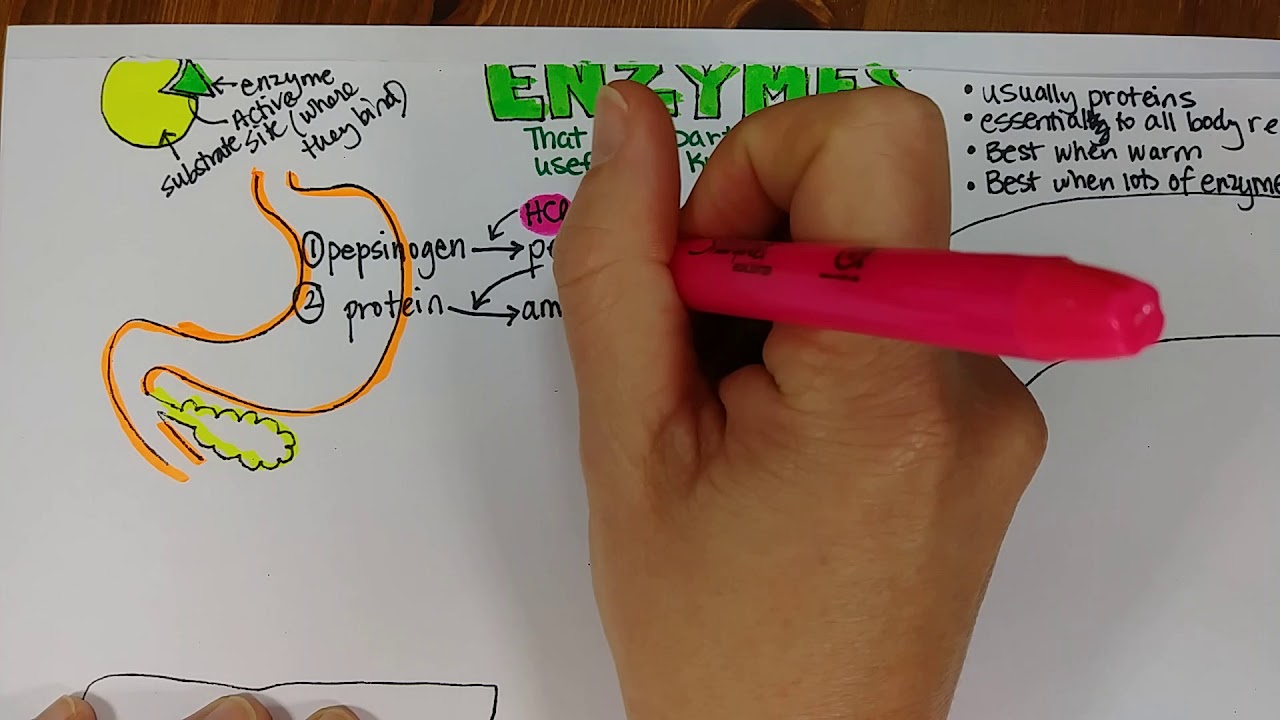 enzyme
Active
site (where
they bind)
substrate
ENZYMES
That
usef
• usually proteins
• essential to all body re
• Best when warm
• Best when lots of enzyme
HCl
① pepsinogen → p
② protein → am
Sharpie